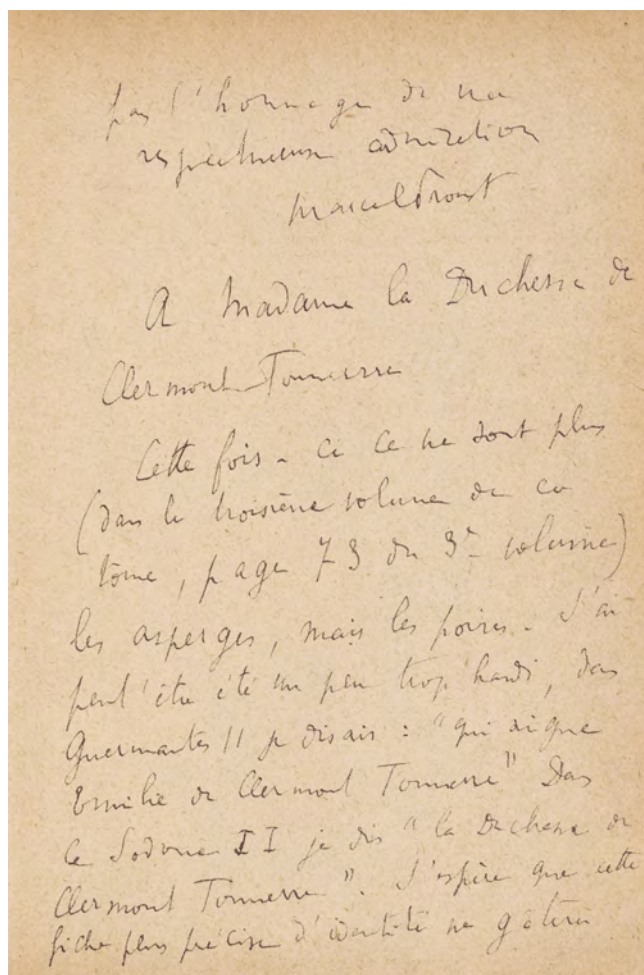 pas l'hommage de ma
respectueuse admiration
Marcel Proust
A Madame la Duchesse de
Clermont-Tonnerre
Cette fois-ci ce ne sont plus
(dans le troisième volume de ce
tome, page 73 du 3e volume)
les asperges, mais les poires. J'ai
peut'être été un peu trop hardi, dans
Guermantes II je disais : "qui signe
Emilie de Clermont Tonnerre" Dans
ce Sodome II je dis "la Duchesse de
Clermont Tonnerre". J'espère que cette
fiche plus précise d'identité ne gâtera